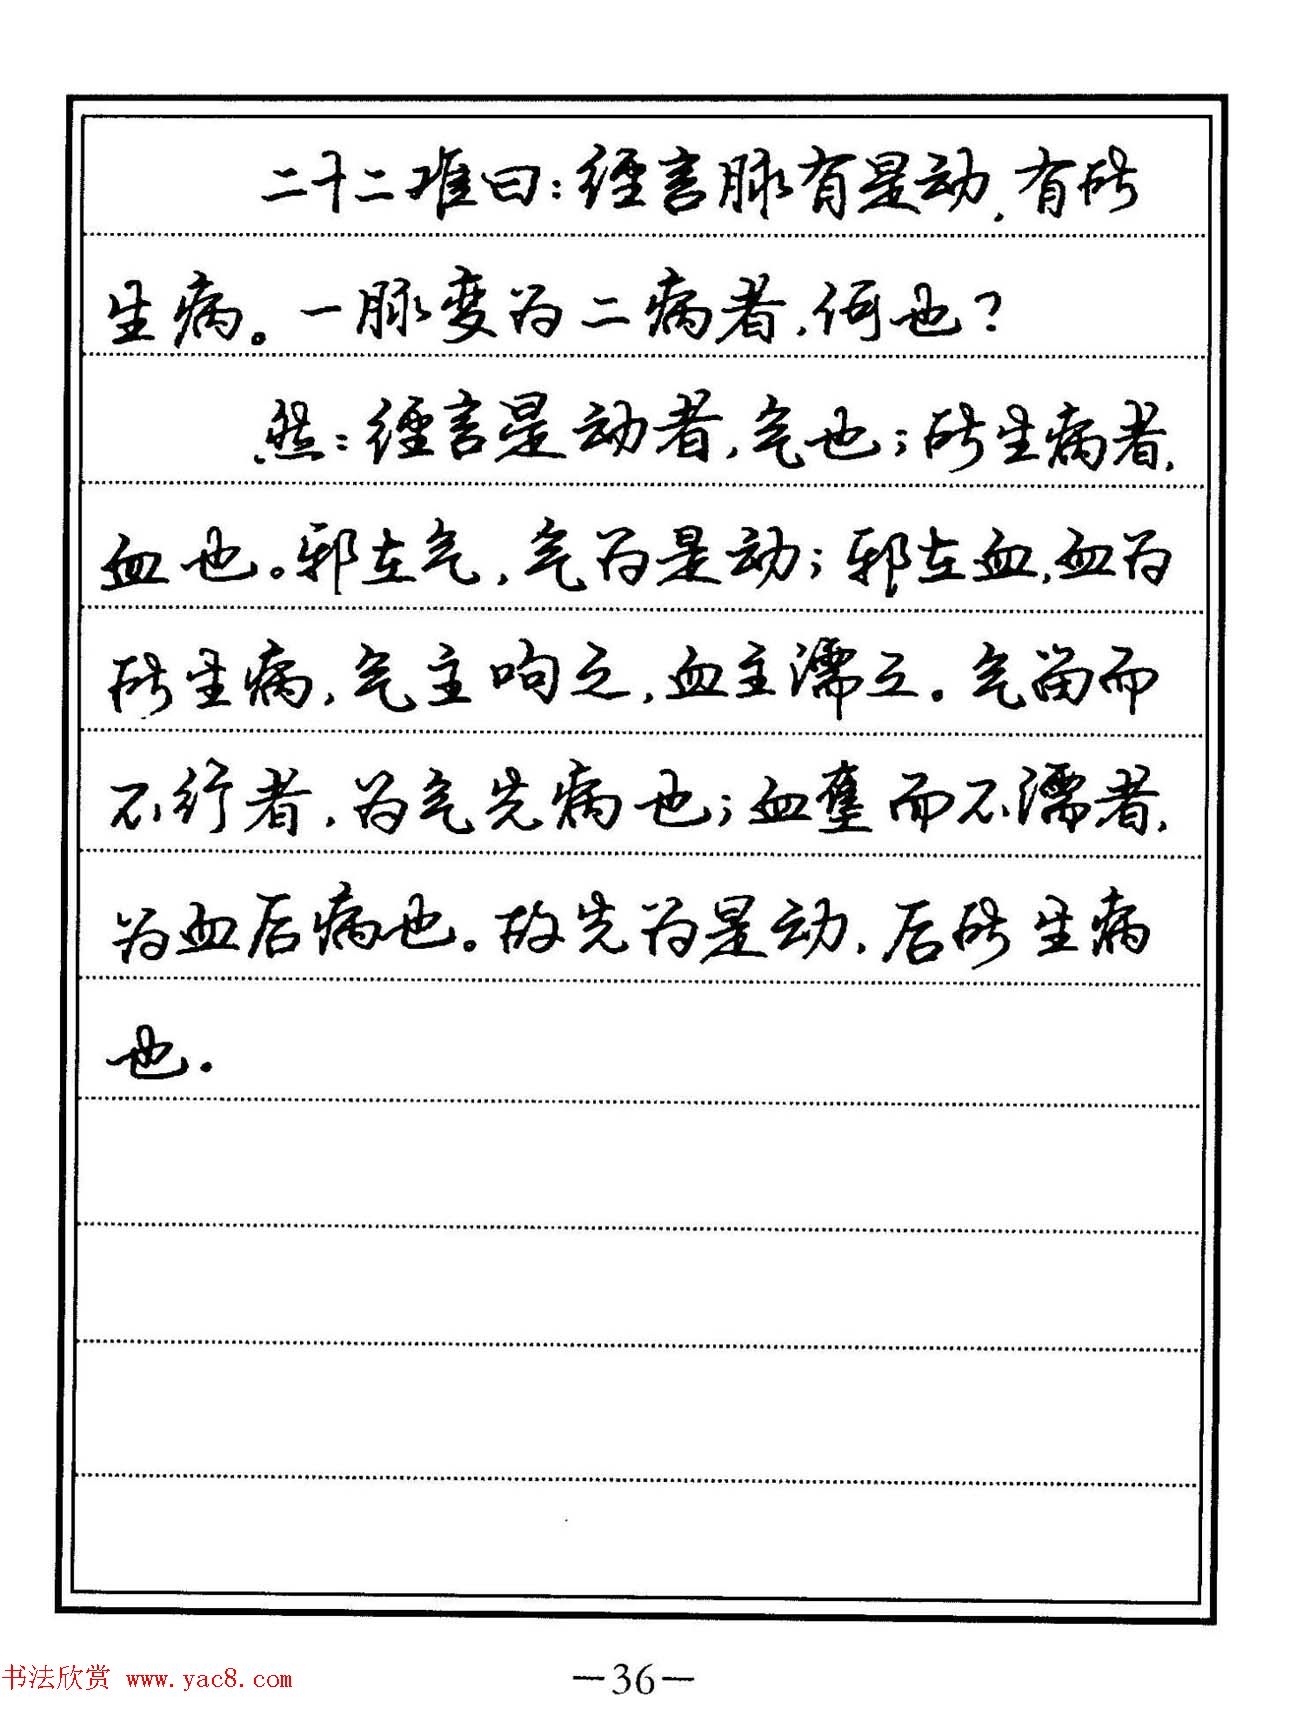 二十二难曰：经言脉有是动，有所
生病。一脉变为二病者，何也？
然：经言是动者，气也；所生病者，
血也。邪在气，气为是动；邪在血，血为
所生病，气主呴之，血主濡之。气留而
不行者，为气先病也；血壅而不濡者，
为血后病也。故先为是动，后所生病
也。
书法欣赏 www.yac8.com
—36—